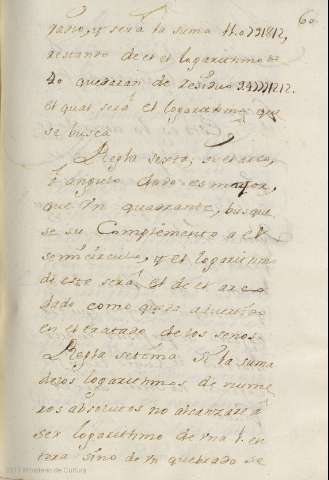 60
y será la suma 11.0791812,
restando de el el logaritmo de
40 quedarán de residuo 9.4771212.
el qual será el logaritmo que
se busca
Regla sexta, si el arco,
ò angulo dado es mayor,
que un quadrante, busque
se su Complemento a el
semicirculo, y el logaritmo
de este será el de el arco
dado como queda advertido
en el tratado de los senos.
Regla setima Si la suma
de los logaritmos de nume
ros absolutos no alcanzare à
ser logaritmo de una u. en
tera sino de un quebrado se
2011 Ministerio de Cultura